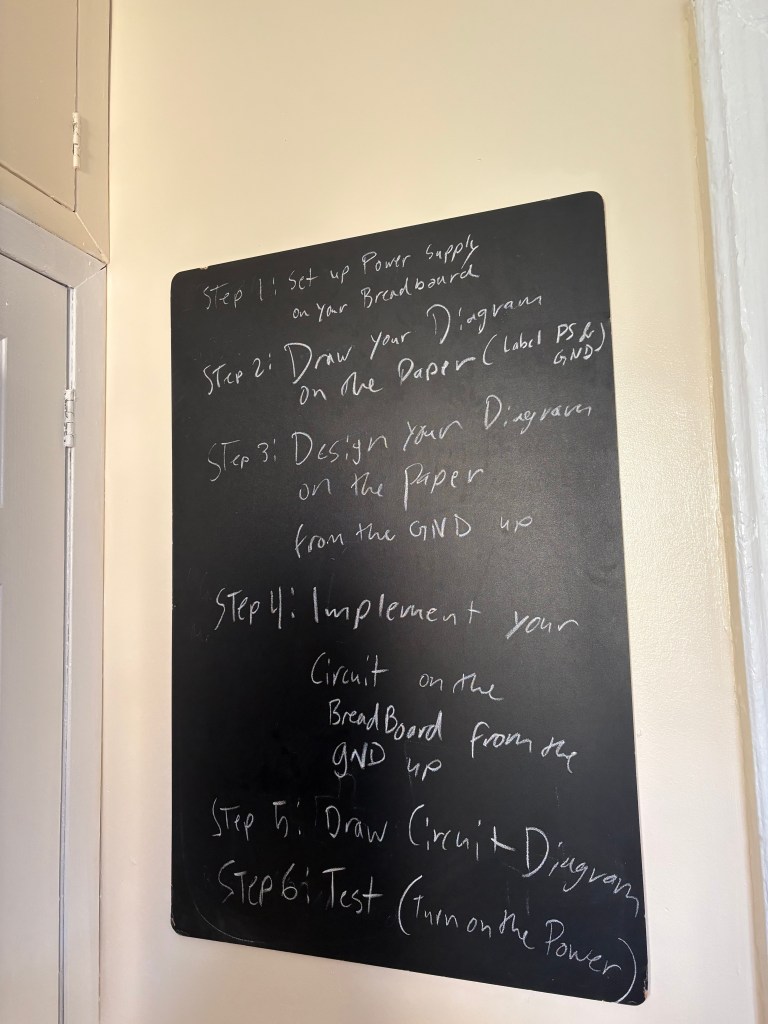 Step 1: Set up Power Supply
on your Breadboard
Step 2: Draw your Diagram
on the Paper (Label PS &
GND)
Step 3: Design your Diagram
on the paper
from the GND up
Step 4: Implement your
Circuit on the
BreadBoard from the
GND up
Step 5: Draw Circuit Diagram
Step 6: Test (Turn on the Power)